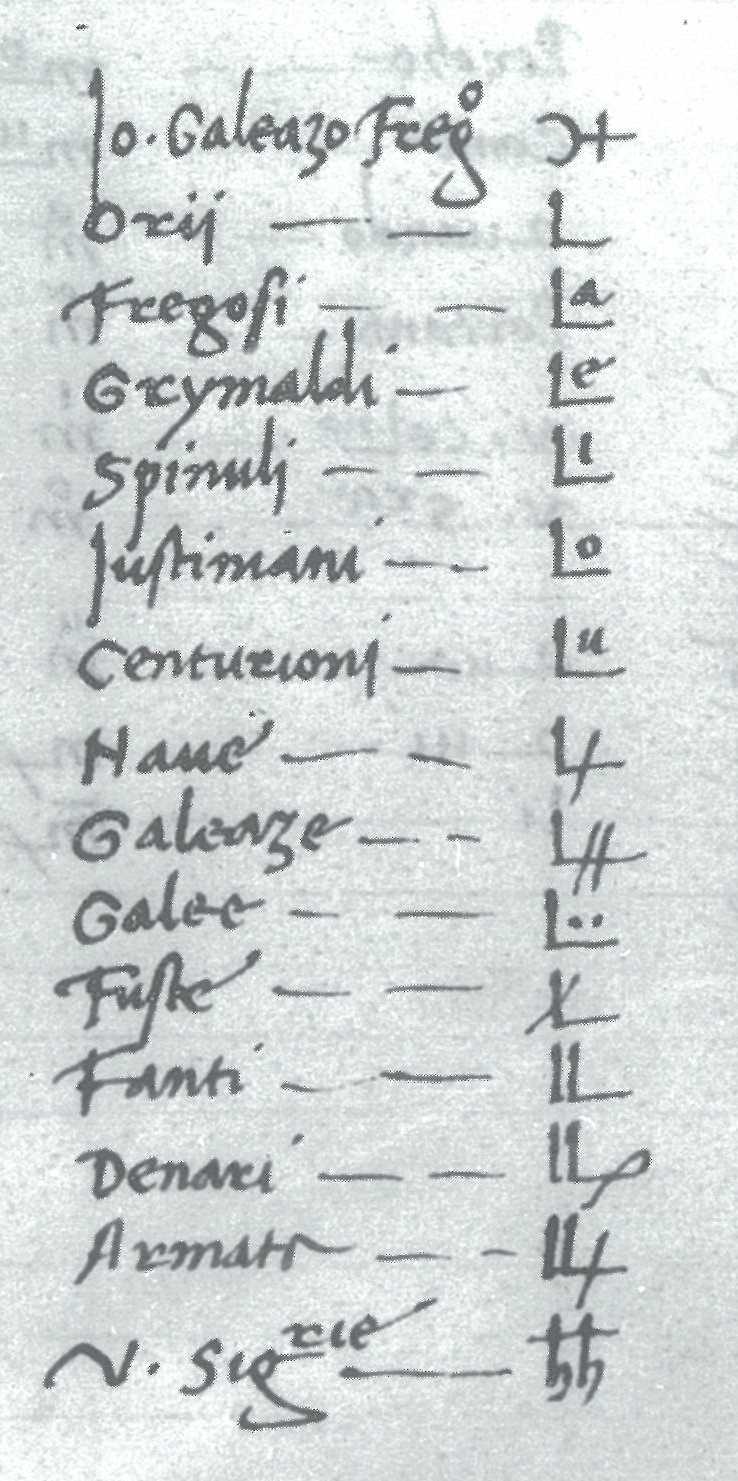 Jo. Galeazo Fregº
Orij — — L
Fregosi — — La
Grymaldi — Le
Spinuli — — Li
Justiniani — — Lo
Centurioni — Lu
Naue — — L
Galeaze — — L
Galee — — L..
Fuste — — L
Fanti — — LL
Denari — — LL
Armati — — LL
N. Sigrie —